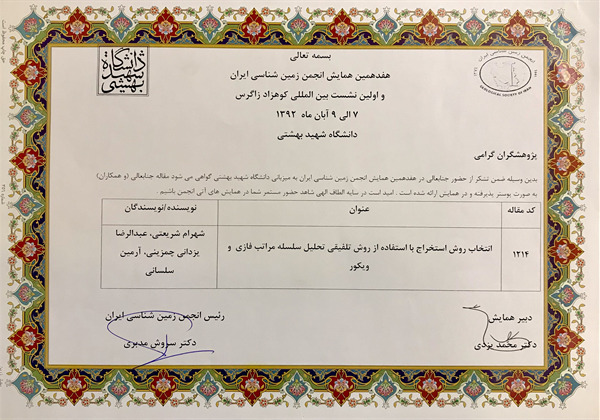 بسمه تعالی
هفدهمین همایش انجمن زمین شناسی ایران
و اولین نشست بین المللی کوهزاد زاگرس
۷ الی ۹ آبان ماه ۱۳۹۲
دانشگاه شهید بهشتی
انجمن زمین شناسی ایران
GEOLOGICAL SOCIETY OF IRAN
دانشگاه
شهید
بهشتی
پژوهشگران گرامی
بدین وسیله ضمن تشکر از حضور جنابعالی در هفدهمین همایش انجمن زمین شناسی ایران به میزبانی دانشگاه شهید بهشتی گواهی می شود مقاله جنابعالی (و همکاران)
به صورت پوستر پذیرفته و در همایش ارائه شده است . امید است در سایه الطاف الهی شاهد حضور مستمر شما در همایش های آتی انجمن باشیم .
کد مقاله عنوان نویسنده/نویسندگان
۱۲۱۴ انتخاب روش استخراج با استفاده از روش تلفیقی تحلیل سلسله مراتب فازی و
ویکور
شهرام شریعتی، عبدالرضا
یزدانی چمزینی، آرمین
سلسانی
دبیر همایش
دکتر محمد یزدی
رئیس انجمن زمین شناسی ایران
دکتر سروش مدبری